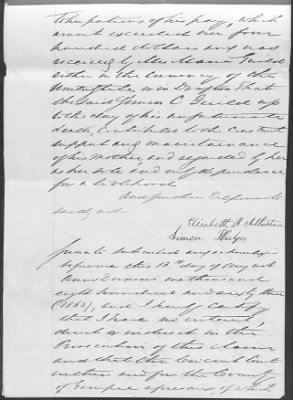 portions of his pay, which
amount exceeded over four
hundred dollars and was
received by Mrs Maria Guild
either in the currency of the
or in Drafts That
the said James C. Guild up
to the day of his unfortunate
death, contributed to the constant
support and maintenance
of his Mother and regarded by her
as her sole and only dependance
for a livelihood
And further Deponents
saith not
Elizabeth H Atherton
Simon Phelps
Jurate subscribed and acknowledged
before me this 13th day of August
Anno Domini one thousand
eight hundred and sixty three
(1863), and I hereby certify
that I have no interest
direct or indirect in the
Prosecution of this claim
and that the Circuit Court
within and for the County
of of which